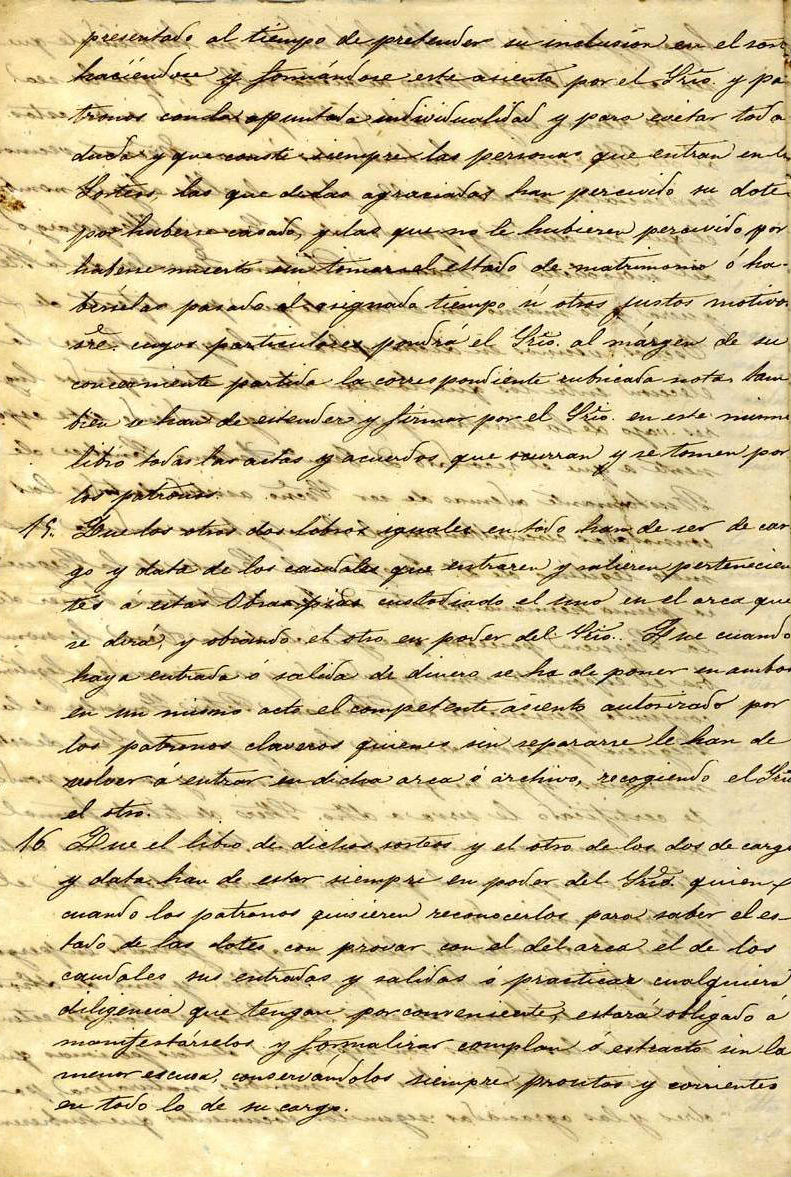 presentado al tiempo de pretender su inclusion en el sor
haciéndose y formándose este asiento por el Srio. y pa
tronos con la apuntada individualidad y para evitar toda
duda y que conste siempre las personas que entran en le
Sorteos, las que de las agraciadas han percivido su dote
por haberse casado, y las que no le hubieren percivido por
haberse muerto sin tomar el estado de matrimonio ó ha
berselas pasado el asignado tiempo ú otros justos motivos
cuyos particulares pondrá el Srio. al márgen de su
concerniente partida la correspondiente rubricada nota, tam
bien se han de estender y firmar por el Srio. en este mismo
libro todas las actas y acuerdos que ocurran y se tomen por
los patronos.
15. Que los otros dos lobros iguales en todo han de ser de car
go y data de los caudales que entraren y salieren pertenecien
tes á estas Obras pias custodiado el uno en el arca que
se dirá, y obrando el otro en poder del Srio. Que cuando
haya entrada ó salida de dinero se ha de poner en ambos
en un mismo acto el competente asiento autorizado por
los patronos claveros quienes sin separarse le han de
volver á entrar en dicha arca ó archivo, recogiendo el Srio
el otro.
16 Que el libro de dichos sorteos y el otro de los dos de cargo
y data han de estar siempre en poder del Srio. quien
cuando los patronos quisieren reconocerlos para saber el es-
tado de las dotes, con provar con el del arca el de los
caudales sus entradas y salidas ó practicar cualquiera
diligencia que tengan por conveniente, estará obligado á
manifestárselos y formalizar complan ó estracto sin la
menor escusa, conservándolos siempre prontos y corrientes
en todo lo de su cargo.